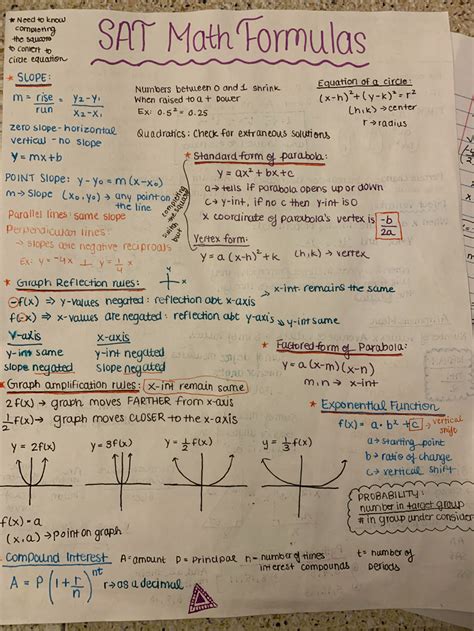 * Need to know
completing
the square
to convert to
circle equation
SAT Math Formulas
* SLOPE:
m = rise/run = y₂-y₁/x₂-x₁
zero slope-horizontal
vertical - no slope
y = mx+b
POINT Slope: y-y₀ = m(x-x₀)
m→ Slope (x₀,y₀) → any point on
the line
Parallel lines: same slope
Perpendicular lines:
→ slopes are negative reciprocals
Ex: y = -4x ⊥ y = 1/4 x
Numbers between 0 and 1 shrink
When raised to a + power
Ex: 0.5² = 0.25
Quadratics: Check for extraneous solutions
Equation of a circle:
(x-h)²+(y-k)² = r²
(h,k) → center
r → radius
* Standard form of parabola:
y = ax² + bx + c
a → tells if parabola opens up or down
c → y-int, if no c then y-int is 0
x coordinate of parabola's vertex is -b/2a
completing
the square
switch
but
Vertex form:
y = a(x-h)² + k (h,k) → vertex
* Graph Reflection rules:
y
x
-f(x) → y-values negated: reflection abt x-axis → x-int remains the same
f(-x) → x-values are negated: reflection abt y-axis → y-int same
y-axis x-axis
y-int same y-int negated
slope negated slope negated
* Factored form of Parabola:
y = a(x-m)(x-n)
m, n → x-int
* Graph amplification rules: x-int remain same
2f(x) → graph moves FARTHER from x-axis
1/2 f(x) → graph moves CLOSER to the x-axis
y = 2f(x) y = 3f(x) y = 1/2 f(x) y = 1/3 f(x)
* Exponential Function
f(x) = a · bˣ + c → vertical
shift
a → starting point
b → ratio of change
c → vertical shift
PROBABILITY:
number in target group
# in group under consider
f(x) = a
(x,a) → point on graph
Compound Interest
A = P(1 + r/n)ⁿᵗ r → as a decimal
A = amount P = Principal n = number of times
interest compounds
t = number of
periods